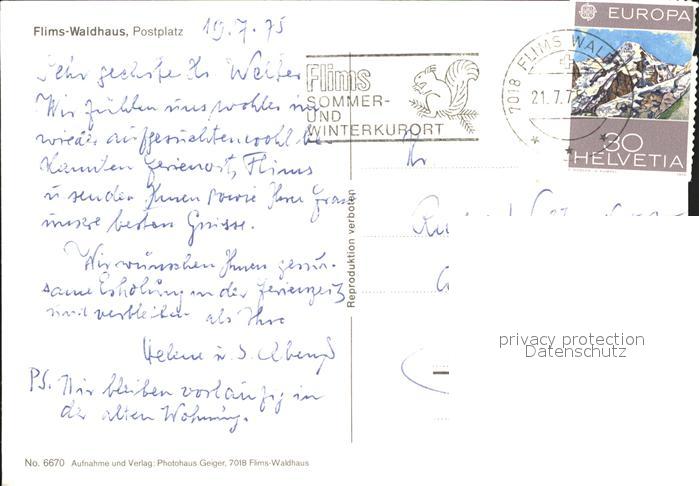 Flims-Waldhaus, Postplatz
19.7.75
Sehr geehrter Hr Welter
Wir fühlen uns wohler im
wieder aufgesuchten wohl be-
kannten Ferienort, Flims
u senden Ihnen sowie Ihrer Frau
unsre besten Grüsse.
Wir wünschen Ihnen geruh-
same Erholung in der Ferienzeit
und verbleiben als Ihre
Helene u. J.
PS. Wir bleiben vorläufig in
der alten Wohnung.
No. 6670 Aufnahme und Verlag: Photohaus Geiger, 7018 Flims-Waldhaus
Reproduktion verboten
Flims
SOMMER-
UND
WINTERKURORT
7018 FLIMS WAL
21.7.7
EUROPA
30
HELVETIA
Hr
privacy protection
Datenschutz